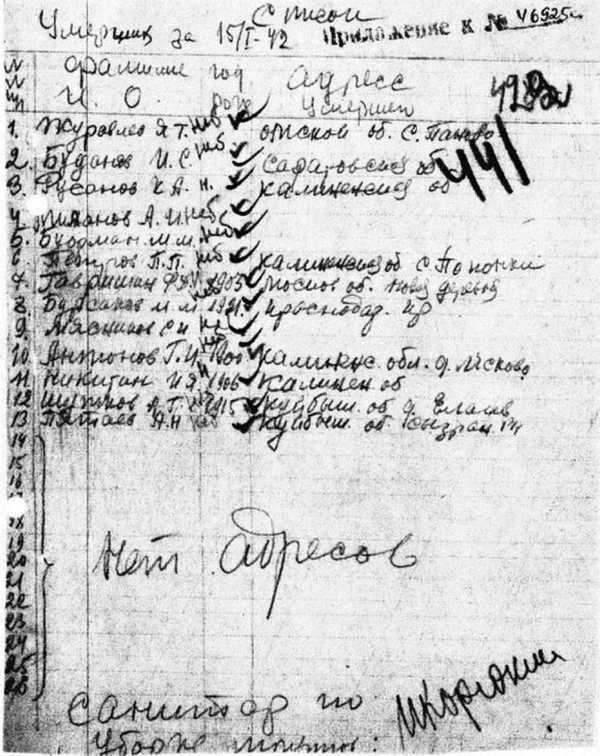 Список
Умерших за 15/I-42 Приложение к № 46925с
№ фамилие год адресс
И. О. рожд умерших
492
441
1. Журовлев Я Т. неб ✓ опсков об. С. Паново
2. Буданов И. С. неб ✓ Саратовской об
3. Русанов К А. н. ✓ калиненской об
4. Миланов А. И. неб ✓
5. Бкорман М. М. неб ✓
6 Петров П. П. неб ✓ калиненской об С. По
7. Гавришин 1905 ✓ Москов об. Новая деревня
8. Бурсаков М. М. 1921. ✓ Краснодар. кр
9. Мясников С И ✓
10. Антонов Г. И. 1900 ✓ калинис. обл. д. Лисково
11 Никитин И Я. 1906 ✓ Калинен об
12 Шутков А. Т. 1915 ✓ Куйбыш. об д.
13 Пятаев А Н неб ✓ Куйбыш. об. Сызран. рн
14
15
16
18
19
20
21
22
23
24
25
26
Нет адресов
Санитар по
уборке трупов.